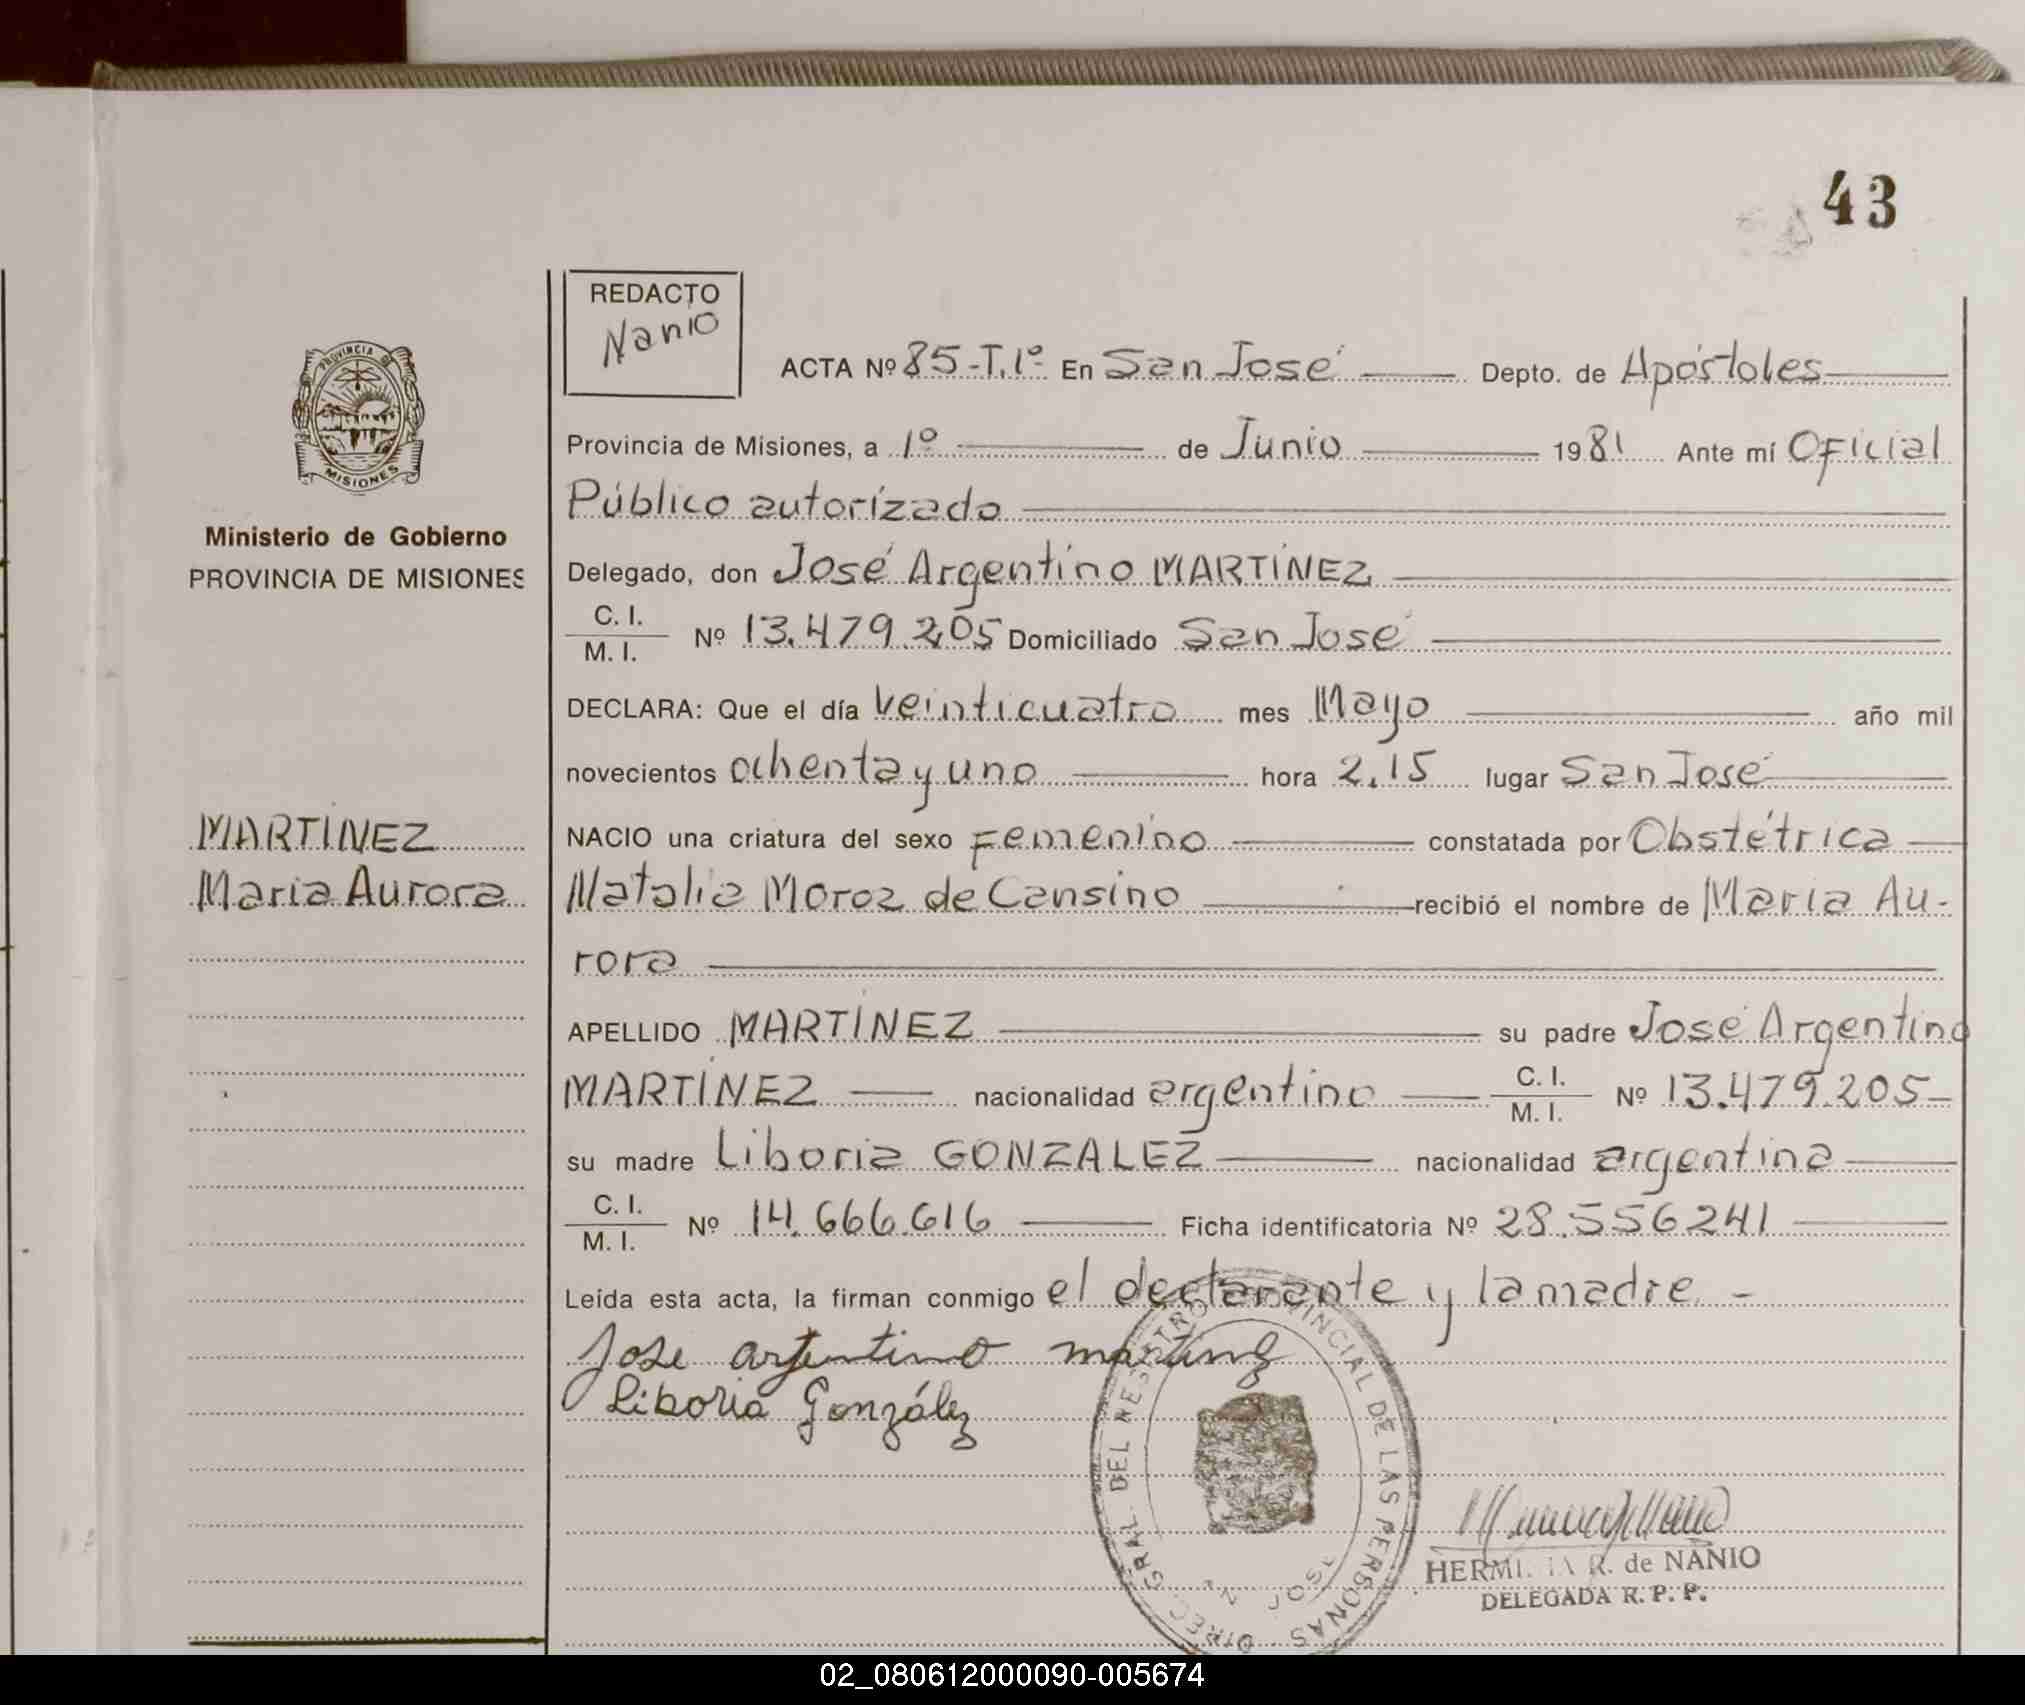 43
REDACTO
Nanio
ACTA Nº 85-T.1º En San José Depto. de Apóstoles
Provincia de Misiones, a 1º de Junio 1981 Ante mí Oficial
Público autorizado
Delegado, don José Argentino MARTÍNEZ
C. I.
M. I. Nº 13.479.205 Domiciliado San José
DECLARA: Que el día veinticuatro mes Mayo año mil
novecientos ochenta y uno hora 2.15 lugar San José
NACIO una criatura del sexo Femenino constatada por Obstétrica
Natalia Moroz de Cansino recibió el nombre de María Au-
rora
APELLIDO MARTÍNEZ su padre José Argentino
MARTÍNEZ nacionalidad argentino C. I. M. I. Nº 13.479.205-
su madre Liboria GONZALEZ nacionalidad argentina
C. I.
M. I. Nº 14.666.616 Ficha identificatoria Nº 28.556241
Leída esta acta, la firman conmigo el declarante y la madre. -
Jose argentino martinez
Liboria González
PROVINCIA DE
MISIONES
Ministerio de Gobierno
PROVINCIA DE MISIONES
MARTÍNEZ
María Aurora
DIREC. GRAL. DEL REGISTRO PROVINCIAL DE LAS PERSONAS
JOSE
R. de NANIO
DELEGADA R. P. P.
02_080612000090-005674